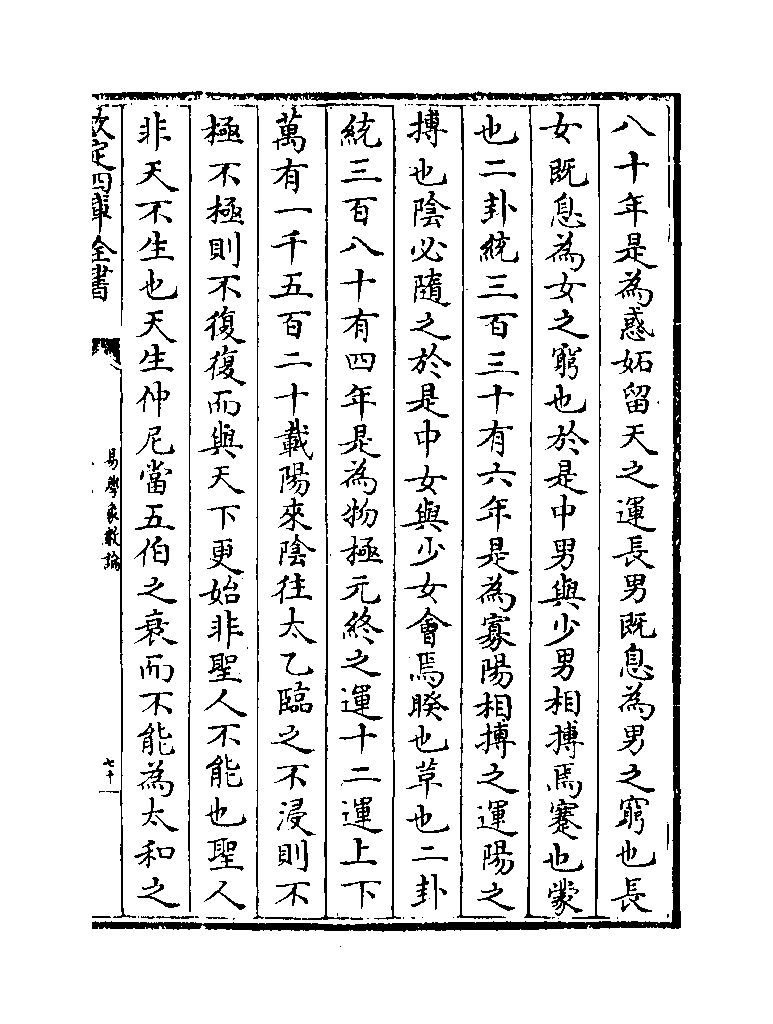 八十年是為惑妬留天之運長男既息為男之窮也長
女既息為女之窮也於是中男與少男相搏焉蹇也蒙
也二卦統三百三十有六年是為寡陽相搏之運陽之
搏也陰必隨之於是中女與少女會焉睽也革也二卦
統三百八十有四年是為物極元終之運十二運上下
萬有一千五百二十載陽來陰往太乙臨之不浸則不
極不極則不復復而與天下更始非聖人不能也聖人
非天不生也天生仲尼當五伯之衰而不能為太和之
欽定四庫全書
易學象數論
七十一